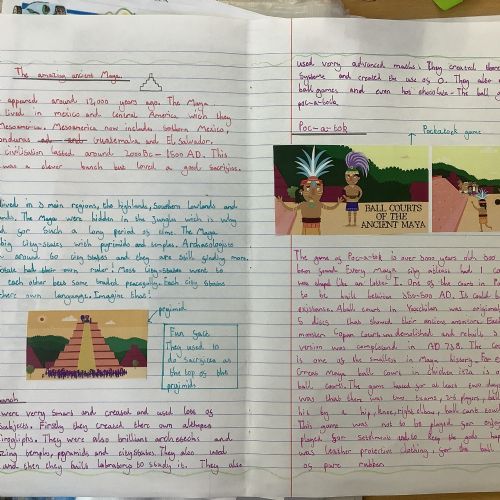 The amazing ancient Maya
appeared around 12,000 years ago. The Maya
lived in mexico and central America wich they
Mesoamerica. Mesoamerica now includes Southern Mexico,
Guatemala and El Salvador.
civilisation lasted around 2000 BC - 1500 AD. This
was a clever bunch but loved a good sacrifise.
lived in 3 main regions, the highlands, Southern Lowlands and
The Maya were hidden in the jungle wich is why
for such a long period of time. The Maya
big city-states with pyrimids and temples. Archaeologists
around 60 city states and they are still finding more.
had their own ruler. Most city-states went to
each other but some traded peacefully. Each city state
there own language. Imagine that!
pryimid
Fun fact
They used to
do sacrifices at
the top of the
pryimids
were very smart and created and used lots of
subjects. Firstly they created there own
They were also brilliant architects and
temples, pyramids and city states. They also used
and then they built to study it. They also
used very advanced maths. They created there
systems and created the use of 0. They also
ball games and even hot chocolate. The ball
poc-a-tok.
Poc-a-tok
Pockatock game
BALL COURTS
OF THE
ANCIENT MAYA
The game of Poc-a-tok is over 3000 years old. 500
been found. Every Maya city atleast had 1
was shaped like an letter I. One of the court in
to be built between 350-500 AD. Is
existence. Ball court in Yaxchilan was
5 discs that showed their
monster. Copan Court was demolished and rebuilt 3
version was completed in AD 738. The
is one of the smallest in Maya history. For
Great Maya ball court in Chichen Itza is
ball courts. The game lasted for at least two days
was that there was two teams, 3-5 players, ball
hit by a hip, knee, right elbow, ball cant touch
This game was not to be played for enjoy
played for to keep the gods
was leather protective clothing. For the ball
of pure rubber.